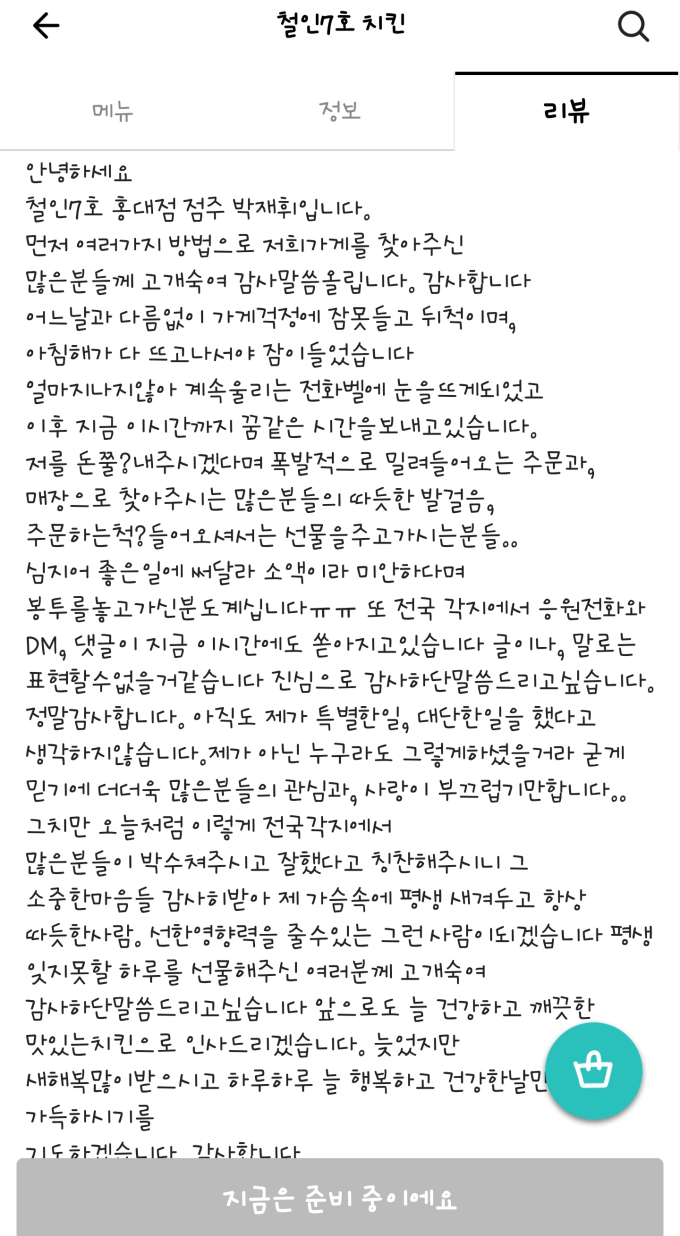 철인7호 치킨
메뉴 정보 리뷰
안녕하세요
철인7호 홍대점 점주 박재휘입니다.
먼저 여러가지 방법으로 저희가게를 찾아주신
많은분들께 고개숙여 감사말씀올립니다. 감사합니다
어느날과 다름없이 가게걱정에 잠못들고 뒤척이며,
아침해가 다 뜨고나서야 잠이들었습니다
얼마지나지않아 계속울리는 전화벨에 눈을뜨게되었고
이후 지금 이시간까지 꿈같은 시간을보내고있습니다.
저를 돈쭐?내주시겠다며 폭발적으로 밀려들어오는 주문과,
매장으로 찾아주시는 많은분들의 따듯한 발걸음,
주문하는척?들어오셔서는 선물을주고가시는분들..
심지어 좋은일에 써달라 소액이라 미안하다며
봉투를놓고가신분도계십니다ㅠㅠ 또 전국 각지에서 응원전화와
DM, 댓글이 지금 이시간에도 쏟아지고있습니다 글이나, 말로는
표현할수없을거같습니다 진심으로 감사하단말씀드리고싶습니다.
정말감사합니다. 아직도 제가 특별한일, 대단한일을 했다고
생각하지않습니다.제가 아닌 누구라도 그렇게하셨을거라 굳게
믿기에 더더욱 많은분들의 관심과, 사랑이 부끄럽기만합니다..
그치만 오늘처럼 이렇게 전국각지에서
많은분들이 박수쳐주시고 잘했다고 칭찬해주시니 그
소중한마음들 감사히받아 제 가슴속에 평생 새겨두고 항상
따듯한사람. 선한영향력을 줄수있는 그런 사람이되겠습니다 평생
잊지못할 하루를 선물해주신 여러분께 고개숙여
감사하단말씀드리고싶습니다 앞으로도 늘 건강하고 깨끗한
맛있는치킨으로 인사드리겠습니다. 늦었지만
새해복많이받으시고 하루하루 늘 행복하고 건강한날만
가득하시기를
기도하겠습니다. 감사합니다
지금은 준비 중이에요